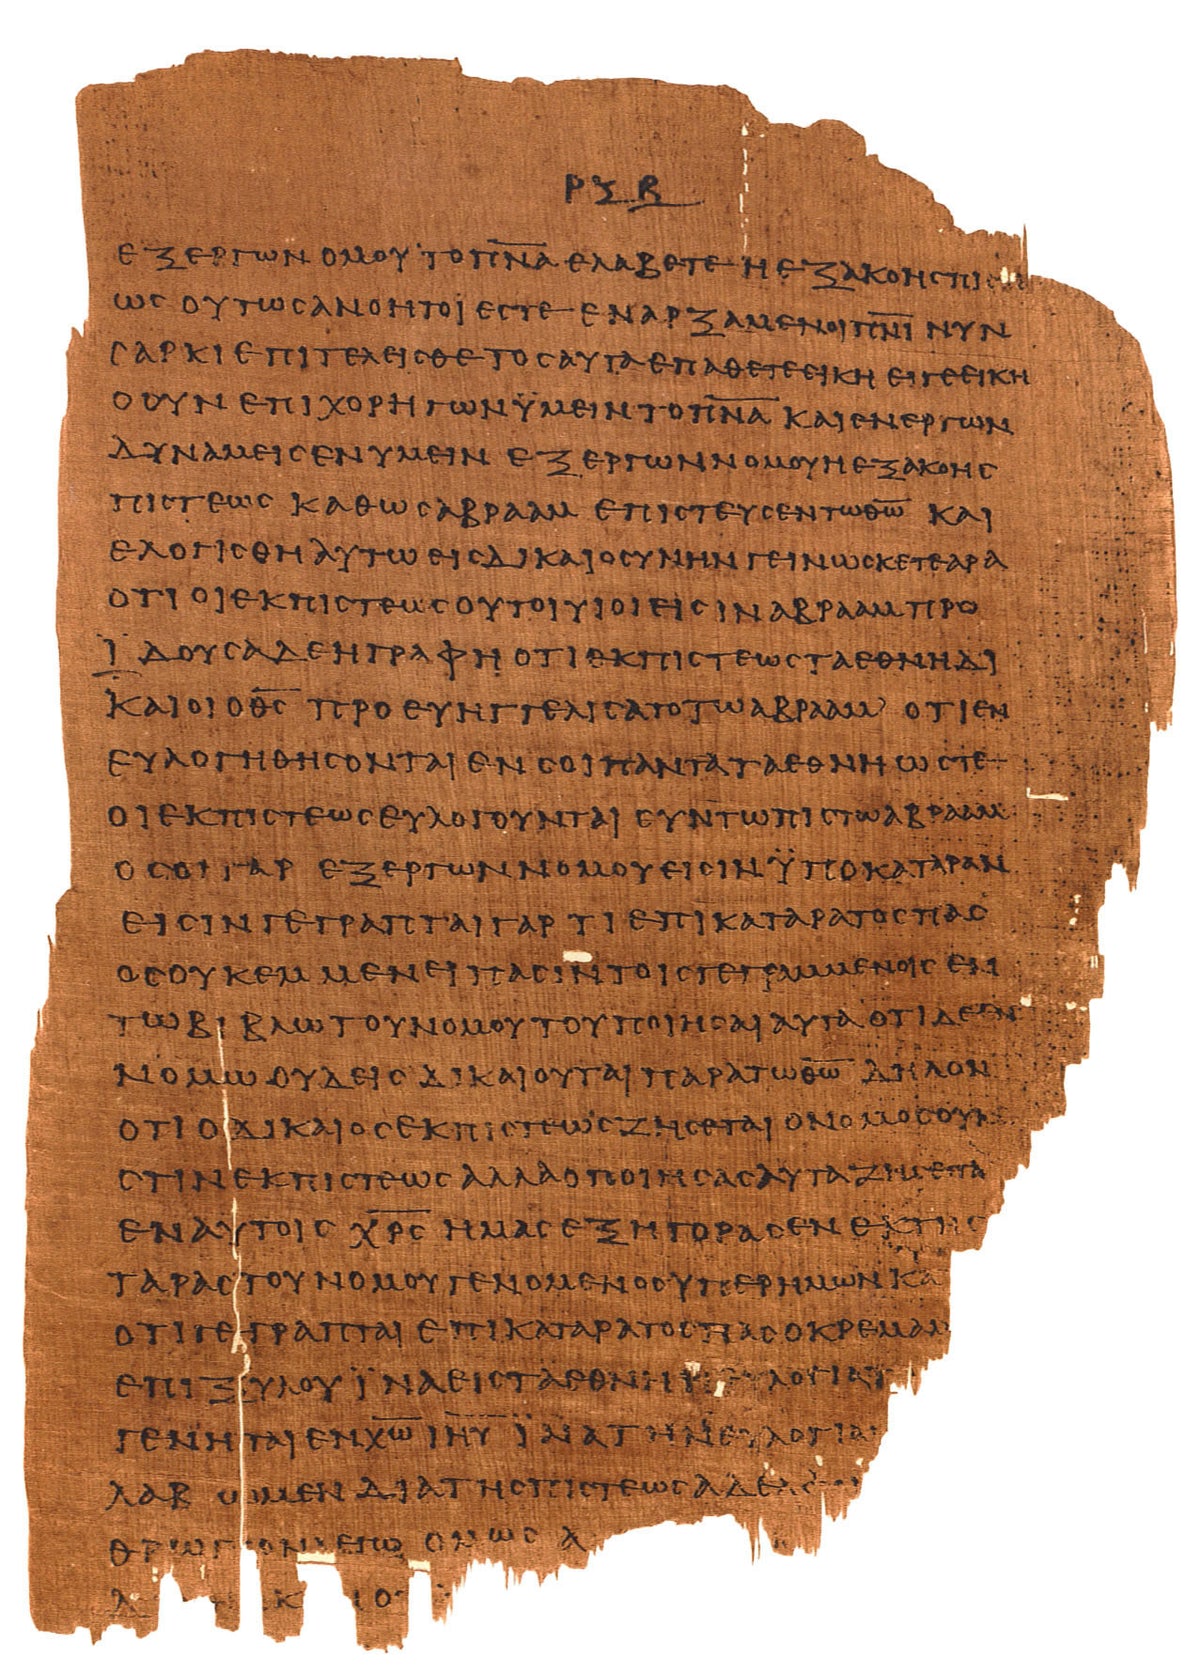 ΡΞΒ
ΕΞ ΕΡΓΩΝ ΟΜΟΥ ΤΟ ΠΝΑ ΕΛΑΒΕΤΕ Η ΕΞ ΑΚΟΗC
ΩC ΟΥΤΩC ΑΝΟΗΤΟΙ ΕCΤΕ ΕΝΑΡΞΑΜΕΝΟΙ ΠΝΙ ΝΥΝ
CΑΡΚΙ ΕΠΙΤΕΛΕΙCΘΕ ΤΟCΑΥΤΑ ΕΠΑΘΕΤΕ ΕΙΚΗ ΕΙ ΓΕ ΕΙΚΗ
Ο ΟΥΝ ΕΠΙΧΟΡΗΓΩΝ ΫΜΕΙΝ ΤΟ ΠΝΑ ΚΑΙ ΕΝΕΡΓΩΝ
ΔΥΝΑΜΕΙC ΕΝ ΥΜΕΙΝ ΕΞ ΕΡΓΩΝ ΝΟΜΟΥ Η ΕΞ ΑΚΟΗC
ΠΙCΤΕΩC ΚΑΘΩC ΑΒΡΑΑΜ ΕΠΙCΤΕΥCΕΝ ΤΩ ΘΩ ΚΑΙ
ΕΛΟΓΙCΘΗ ΑΥΤΩ ΕΙC ΔΙΚΑΙΟCΥΝΗΝ ΓΕΙΝΩCΚΕΤΕ ΑΡΑ
ΟΤΙ ΟΙ ΕΚ ΠΙCΤΕΩC ΟΥΤΟΙ ΥΙΟΙ ΕΙCΙΝ ΑΒΡΑΑΜ ΠΡΟ
Ϊ ΔΟΥCΑ ΔΕ Η ΓΡΑΦΗ ΟΤΙ ΕΚ ΠΙCΤΕΩC ΤΑ ΕΘΝΗ ΔΙ
ΚΑΙΟΙ Ο ΘC ΠΡΟΕΥΗΓΓΕΛΙCΑΤΟ ΤΩ ΑΒΡΑΑΜ ΟΤΙ ΕΝ
ΕΥΛΟΓΗΘΗCΟΝΤΑΙ ΕΝ CΟΙ ΠΑΝΤΑ ΤΑ ΕΘΝΗ ΩCΤΕ
ΟΙ ΕΚ ΠΙCΤΕΩC ΕΥΛΟΓΟΥΝΤΑΙ CΥΝ ΤΩ ΠΙCΤΩ ΑΒΡΑΑΜ
ΟCΟΙ ΓΑΡ ΕΞ ΕΡΓΩΝ ΝΟΜΟΥ ΕΙCΙΝ ΫΠΟ ΚΑΤΑΡΑΝ
ΕΙCΙΝ ΓΕΓΡΑΠΤΑΙ ΓΑΡ ΤΙ ΕΠΙΚΑΤΑΡΑΤΟC ΠΑC
ΟC ΟΥΚ ΕΜΜΕΝΕΙ ΠΑCΙΝ ΤΟΙC ΓΕΓΡΑΜΜΕΝΟΙC
ΤΩ ΒΙΒΛΩ ΤΟΥ ΝΟΜΟΥ ΤΟΥ ΠΟΙΗCΑΙ ΑΥΤΑ ΟΤΙ ΔΕ ΕΝ
ΝΟΜΩ ΟΥΔΕΙC ΔΙΚΑΙΟΥΤΑΙ ΠΑΡΑ ΤΩ ΘΩ ΔΗΛΟΝ
ΟΤΙ Ο ΔΙΚΑΙΟC ΕΚ ΠΙCΤΕΩC ΖΗCΕΤΑΙ Ο ΝΟΜΟC ΟΥΚ
CΤΙΝ ΕΚ ΠΙCΤΕΩC ΑΛΛΑ Ο ΠΟΙΗCΑC ΑΥΤΑ
ΕΝ ΑΥΤΟΙC ΧΡC ΗΜΑC ΕΞΗΓΟΡΑCΕΝ ΕΚ
ΤΑΡΑC ΤΟΥ ΝΟΜΟΥ ΓΕΝΟΜΕΝΟC ΥΠΕΡ ΗΜΩΝ ΚΑ
ΟΤΙ ΓΕΓΡΑΠΤΑΙ ΕΠΙΚΑΤΑΡΑΤΟC ΠΑC Ο ΚΡΕΜΑΜ
ΕΠΙ ΞΥΛΟΥ ΪΝΑ ΕΙC ΤΑ ΕΘΝΗ ΕΥΛΟΓΙΑ
ΓΕΝΗΤΑΙ ΕΝ ΧΩ ΙΗΥ ΪΝΑ ΤΗΝ ΕΥΛΟΓΙΑΝ
ΛΑΒΩΜΕΝ ΔΙΑ ΤΗC ΠΙCΤΕΩC ΑΔΕΛ
ΟΜΩC Α